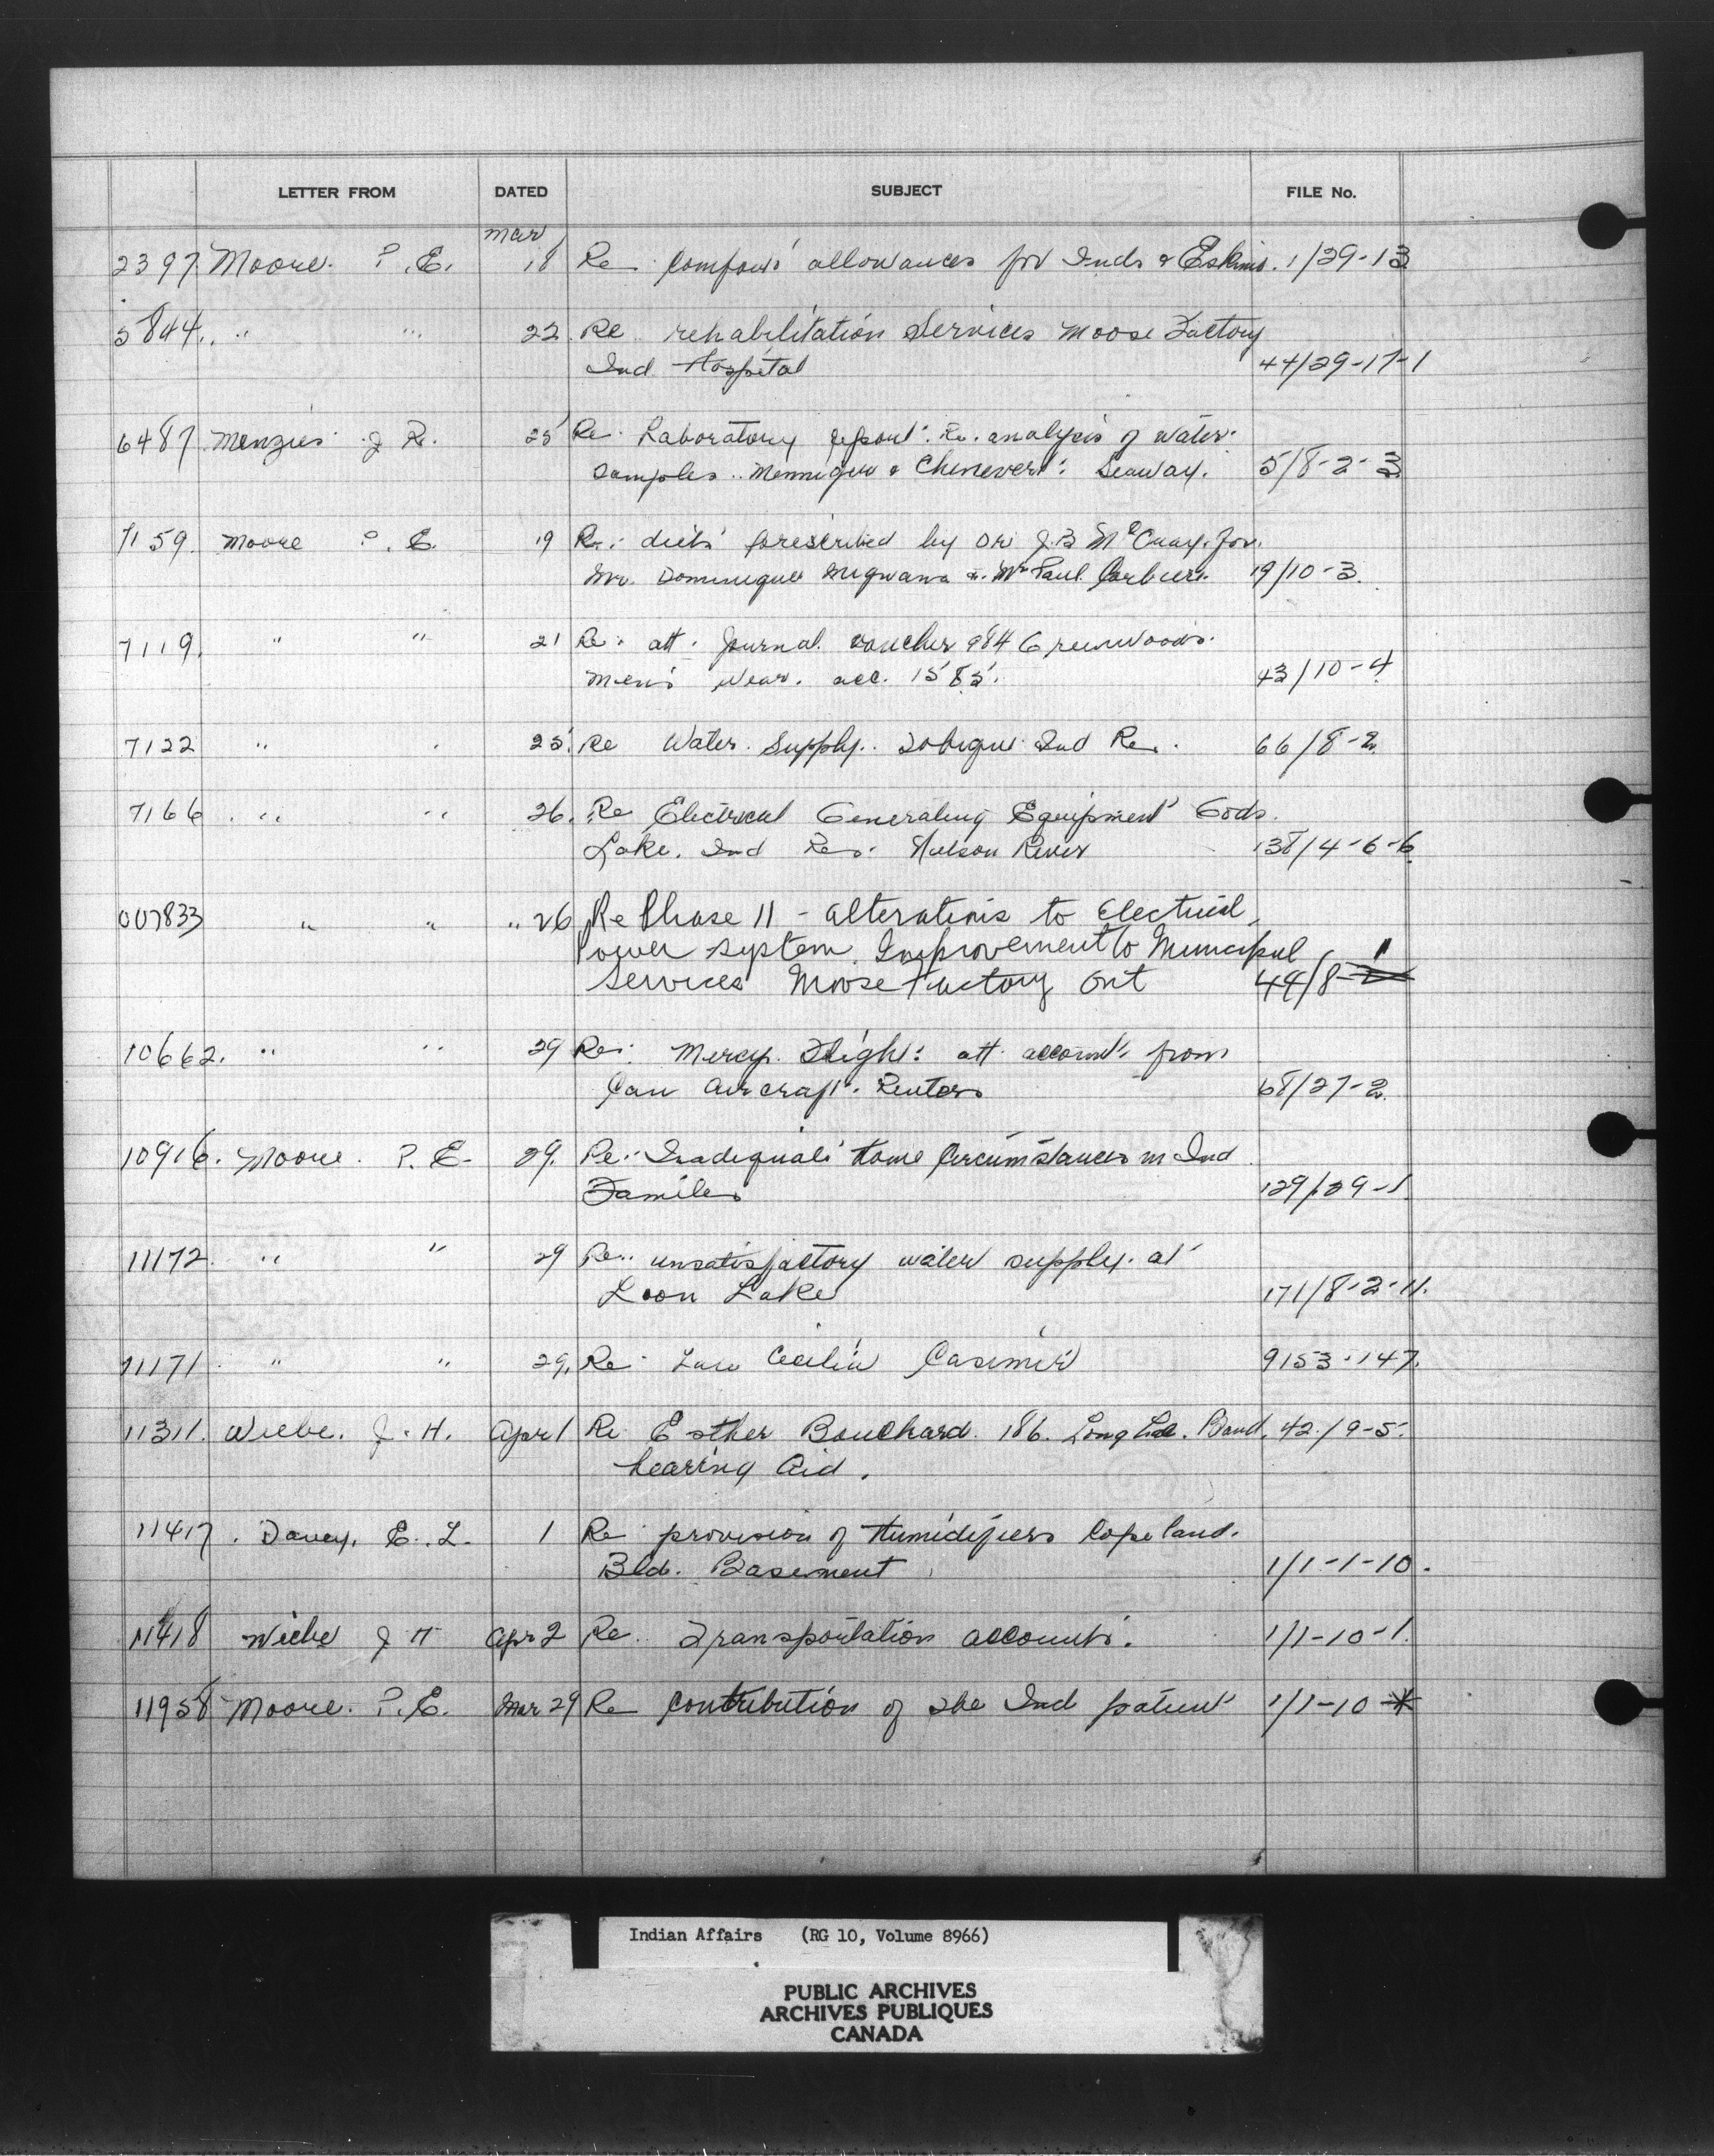 LETTER FROM DATED SUBJECT FILE No.
Mar
2397. Moore. P.E. 18 Re Comfort allowances for Inds & Eskimo. 1/29-13
5844. " " 22. Re rehabilitation Services Moose Factory
Ind. Hospital 44/29-17-1
6487 Menzies J R. 25 Re. Laboratory report. Re. analysis of water
samples .. & Chenevert. Seaway. 5/8-2-3
7159. Moore P. E. 19 Re: diets prescribed by Dr J.B McCuay. for.
Mr. Dominique Migwans & Mr Paul Corbiere. 19/10-3.
7119. " " 21 Re: att. Journal voucher 984 Greenwoods.
Men's Wear. acc. 1585. 43/10-4
7122 " " 25. Re Water Supply. Tobique Ind Res. 66/8-2.
7166 " " 26. Re Electrical Generating Equipment Gods.
Lake. Ind Res. Nelson River 138/4-6-6
007833 " " " 26 Re Phase II - alterations to Electrical
Power system. Improvement to Municipal
Services Moose Factory Ont 44/8-1
10662. " " 29 Re: Mercy Flight: att accounts from
Can Aircraft. Renters 68/27-2.
10916. Moore. P. E. 29. Re: Inadequate Home Circumstances in Ind
Families 129/29-1.
11172. " " 29 Re: unsatisfactory water supply. at
Loon Lake 171/8-2-11.
11171 " " 29. Re. Cecilia Casimir 9153-147.
11311. Wiebe. J. H. Apr 1 Re Esther Bouchard. 186. Long Lac. Band. 42/9-5.
hearing Aid.
11417. Davey. E. L. 1 Re provision of Humidifiers Copeland.
Bld. Basement 1/1-1-10.
11418 Wiebe J H Apr 2 Re.. Transportation accounts. 1/1-10-1.
11958 Moore. P.E. Mar 29 Re Contribution of the Ind patient 1/1-10
Indian Affairs (RG 10, Volume 8966)
PUBLIC ARCHIVES
ARCHIVES PUBLIQUES
CANADA